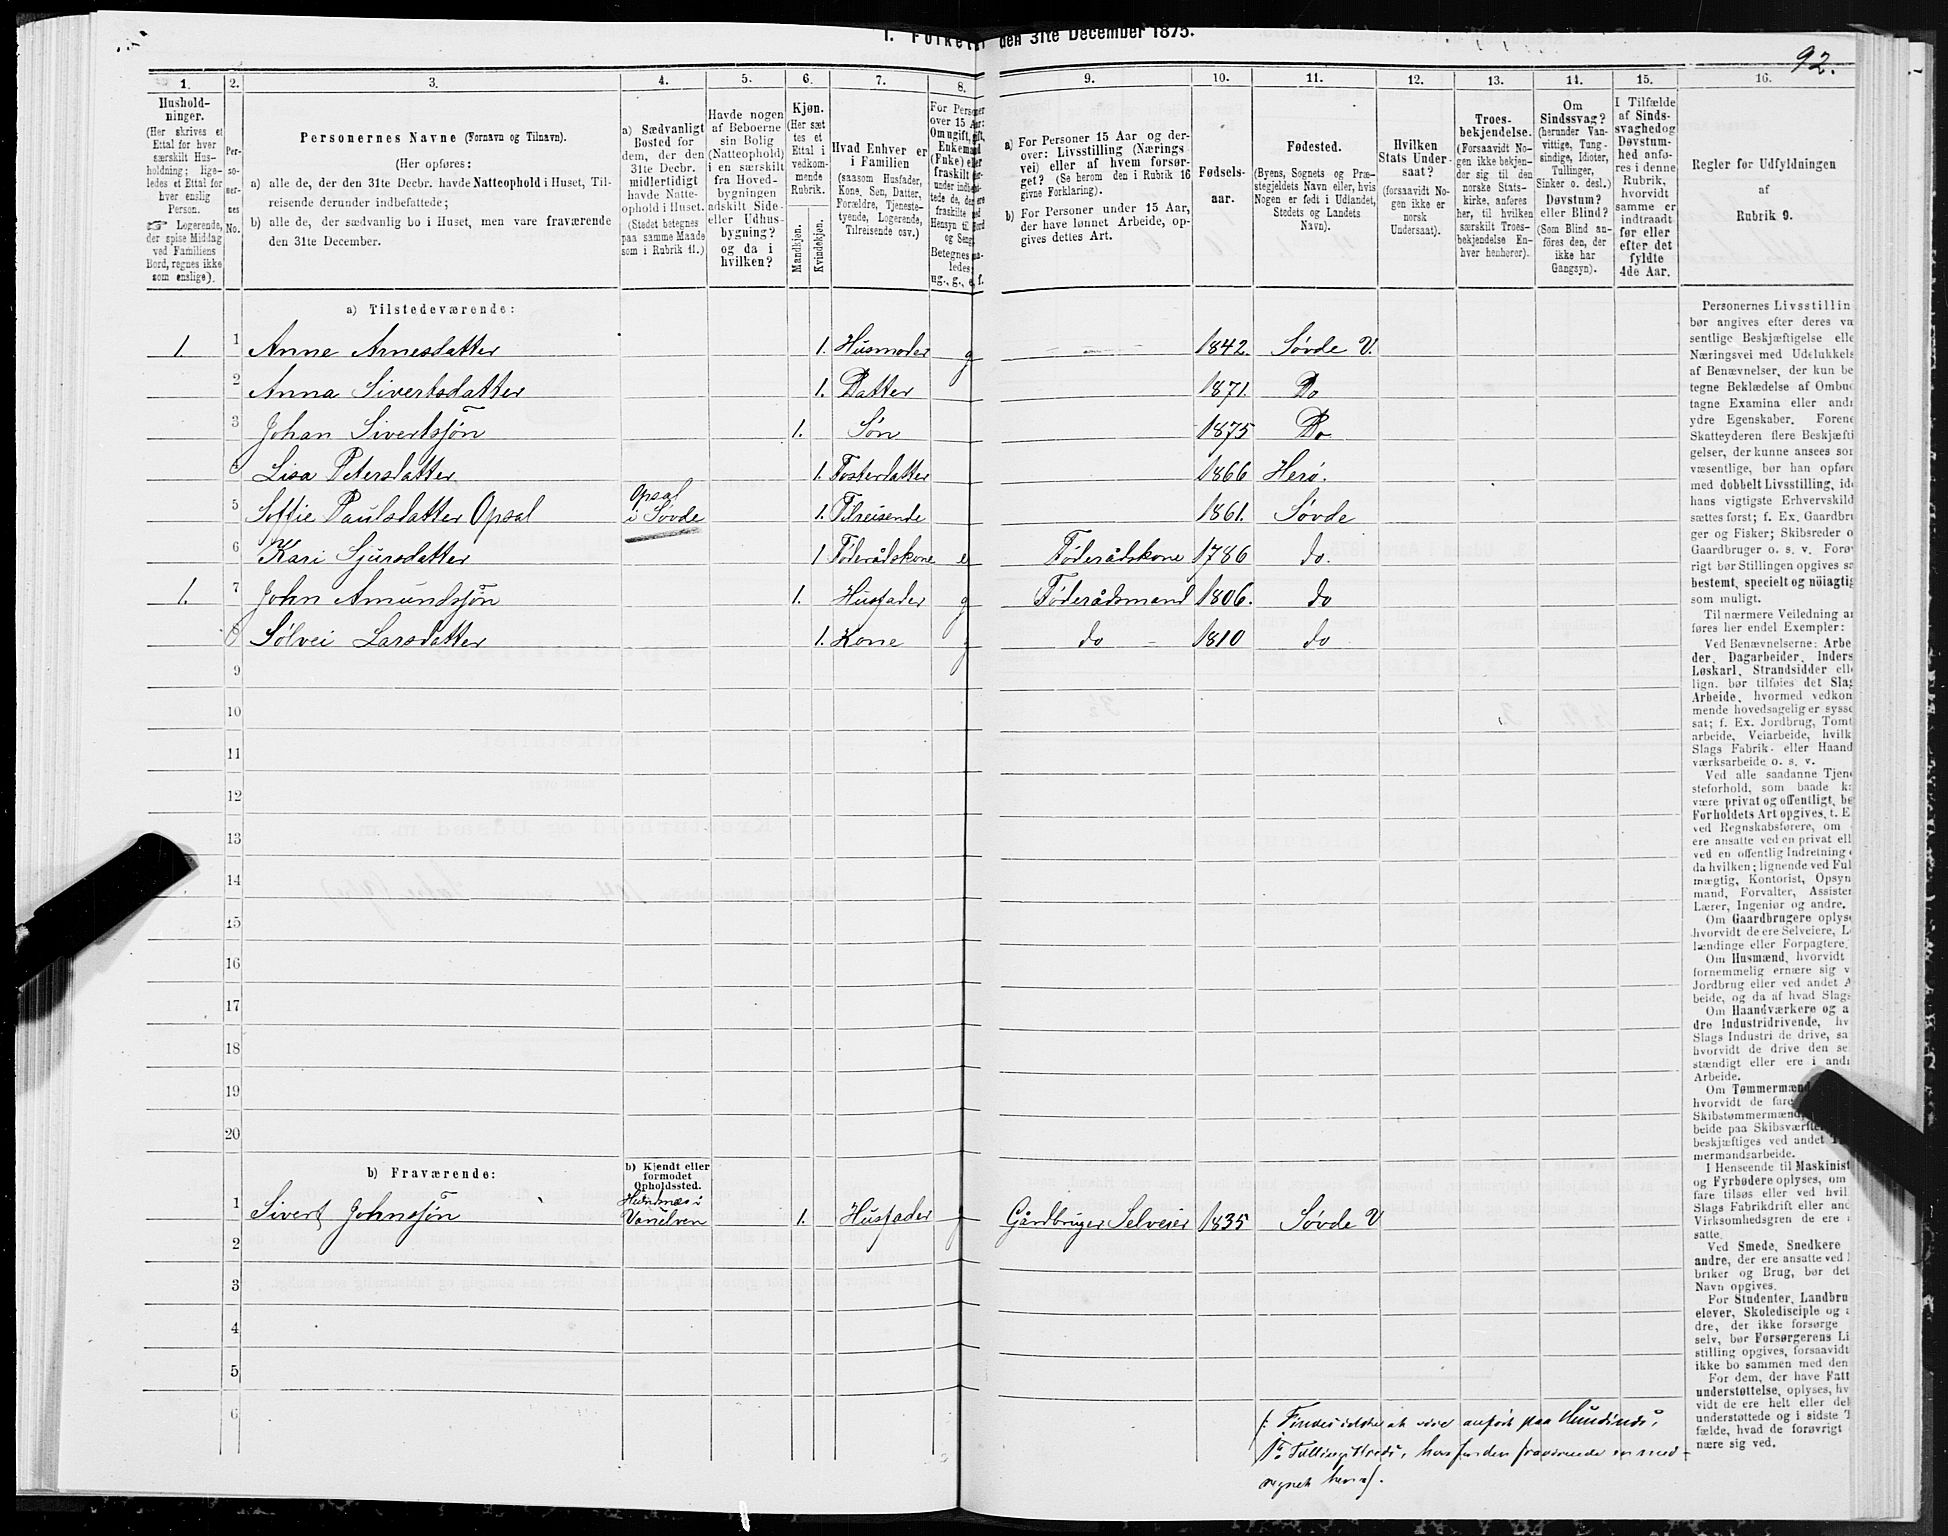 I. Folketæl den 31te December 1875.
92.
1. 2. 3. 4. 5. 6. 7. 8. 9. 10. 11. 12. 13. 14. 15. 16.
Hushold-
ninger.
(Her skrives et
Ettal for hver
særskilt Hus-
holdning; lige-
ledes et Ettal for
hver enslig
Person.
☞ Logerende,
der spise Middag
ved Familiens
Bord, regnes ikke
som enslige).
Per-
so-
ner-
nes
No.
Personernes Navne (Fornavn og Tilnavn).
(Her opføres:
a) alle de, der den 31te Decbr. havde Natteophold i Huset, Til-
reisende derunder indbefattede;
b) alle de, der sædvanlig bo i Huset, men vare fraværende
den 31te December.
a) Sædvanligt
Bosted for
dem, der den
31te Decbr.
midlertidigt
havde Natte-
ophold i Huset.
(Stedet betegnes
paa samme Maade
som i Rubrik 11.)
Havde nogen
af Beboerne
sin Bolig
(Natteophold)
i en særskilt
fra Hoved-
bygningen
adskilt Side-
eller Udhus-
bygning?
og da i
hvilken?
Kjøn.
(Her sæt
tes et
Ettal i
vedkom-
mende
Rubrik.
Mandkjøn.
Kvindekjøn.
Hvad Enhver er
i Familien
(saasom Husfader,
Kone, Søn, Datter,
Forældre, Tjeneste-
tyende, Logerende,
Tilreisende osv.)
For Personer
over 15 Aar:
Om ugift, gift,
Enkemand
(Fuke) eller
fraskilt
a) For Personer 15 Aar og der-
over: Livsstilling (Nærings-
vei) eller af hvem forsør-
get? (Se herom den i Rubrik 16
givne Forklaring).
b) For Personer under 15 Aar,
der have lønnet Arbeide, op-
gives dettes Art.
Fødsels-
aar.
Fødested.
(Byens, Sognets og Præ-
stegjeldets Navn eller, hvis
Nogen er født i Udlandet,
Stedets og Landets
Navn).
Hvilken
Stats Under-
saat?
(forsaavidt No-
gen ikke er
norsk
Undersaat).
Troes-
bekjendelse.
(Forsaavidt No-
gen ikke bekjen-
der sig til den
norske Stats-
kirke, anføres
her, til hvilken
særskilt Troes-
bekjendelse En-
hver henhører).
Om
Sindssvag?
(herunder Van-
vittige, Tung-
sindige, Idioter,
Tullinger,
Sinker o. desl.)
Døvstum?
eller Blind?
(Som Blind an-
føres den, der
ikke har
Gangsyn).
I Tilfælde
af Sinds-
svaghed og
Døvstum-
hed anfø-
res i denne
Rubrik,
hvorvidt
samme er
indtraadt
før eller
efter det
fyldte
4de Aar.
Regler for Udfyldningen
af
Rubrik 9.
a) Tilstedeværende:
1. 1 Anne Arnesdatter 1. Husmoder g 1842. Søvde V.
2 Anna Sivertsdatter 1. Datter 1871. Do
3 Johan Sivertssøn 1. Søn 1875 Do
Lisa Petersdatter 1. Fosterdatter 1866 Herø.
5 Soffie Paulsdatter Opsal Opsal i Søvde 1. Tilreisende 1861. Søvde
6 Kari Sjursdatter 1 Føderådskone e Føderådskone 1786 do.
1. 7 John Amundssøn 1. Husfader g Føderådsmand 1806. do
8 Sølvei Larsdatter 1. Kone g do 1810 do
9
10
11
12
13
14
15
16
17
18
19
20
b) Fraværende:
b) Kjendt eller
formodet
Opholdssted.
1 Sivert Johnssøn Vanelven 1. Husfader Gårdbruger Selveier 1835 Søvde V
2
3
4
5
6
Personernes Livsstillin
bør angives efter deres væ
sentlige Beskjæftigelse elle
Næringsvei med Udelukkels
af Benævnelser, der kun be
tegne Beklædelse af Ombud
tagne Examina eller andr
ydre Egenskaber. Forene
Skatteyderen flere Beskjæfti
gelser, der kunne ansees som
væsentlige, bør han opføre
med dobbelt Livsstilling, id
hans vigtigste Erhvervskild
sættes først; f. Ex. Gaardbru
ger og Fisker; Skibsreder o
Gaardbruger o. s. v. Forøv
rigt bør Stillingen opgives sa
bestemt, specielt og nöiagtig
som muligt.
Til nærmere Veiledning an
føres her endel Exempler:
Ved Benævnelserne: Arbe
der, Dagarbeider, Inders
Løskarl, Strandsidder elle
lign. bør tilføies det Slag
Arbeide, hvormed vedkom
mende hovedsagelig er sysse
sat; f. Ex. Jordbrug, Tomt
arbeide, Veiarbeide, hvilk
Slags Fabrik- eller Haand
værksarbeide o. s. v.
Ved alle saadanne Tjene
steforhold, som baade ka
være privat og offentligt, bø
Forholdets Art opgives, t. E
ved Regnskabsførere, om
ere ansatte ved en privat ell
ved en offentlig Indretning o
da hvilken; lignende ved Ful
mægtig, Kontorist, Opsyn
mand, Forvalter, Assisten
Lærer, Ingeniør og andre.
Om Gaardbrugere oplyse
hvorvidt de ere Selveiere, L
lændinge eller Forpagtere.
Om Husmænd, hvorvidt
fornemmelig ernære sig v
Jordbrug eller ved andet A
beide, og da af hvad Slags
Om Haandværkere og a
dre Industridrivende, hv
Slags Industri de drive, sa
hvorvidt de drive den se
stændigt eller ere i andr
Arbeide.
Om Tømmermænd
hvorvidt de fare
Skibstømmermænd,
beide paa Skibsværfter
beskjæftiges ved andet
mermandsarbeide.
I Henseende til Maskinist
og Fyrbødere oplyses, om
fare tilsøs eller ved hvil
Slags Fabrikdrift eller and
Virksomhedsgren de ere
satte.
Ved Smede, Snedkere
andre, der ere ansatte ved
briker og Brug, bør det
Navn opgives.
For Studenter, Landbru
elever, Skoledisciple og a
dre, der ikke forsørge
selv, bør Forsørgerens Li
stilling opgives, forsaavidt
ikke bo sammen med den
For dem, der have Fatt
understøttelse, oplyses, hv
vidt de ere helt eller del
understøttede og i sidste T
fælde, hvad de forøvrigt
nære sig ved.